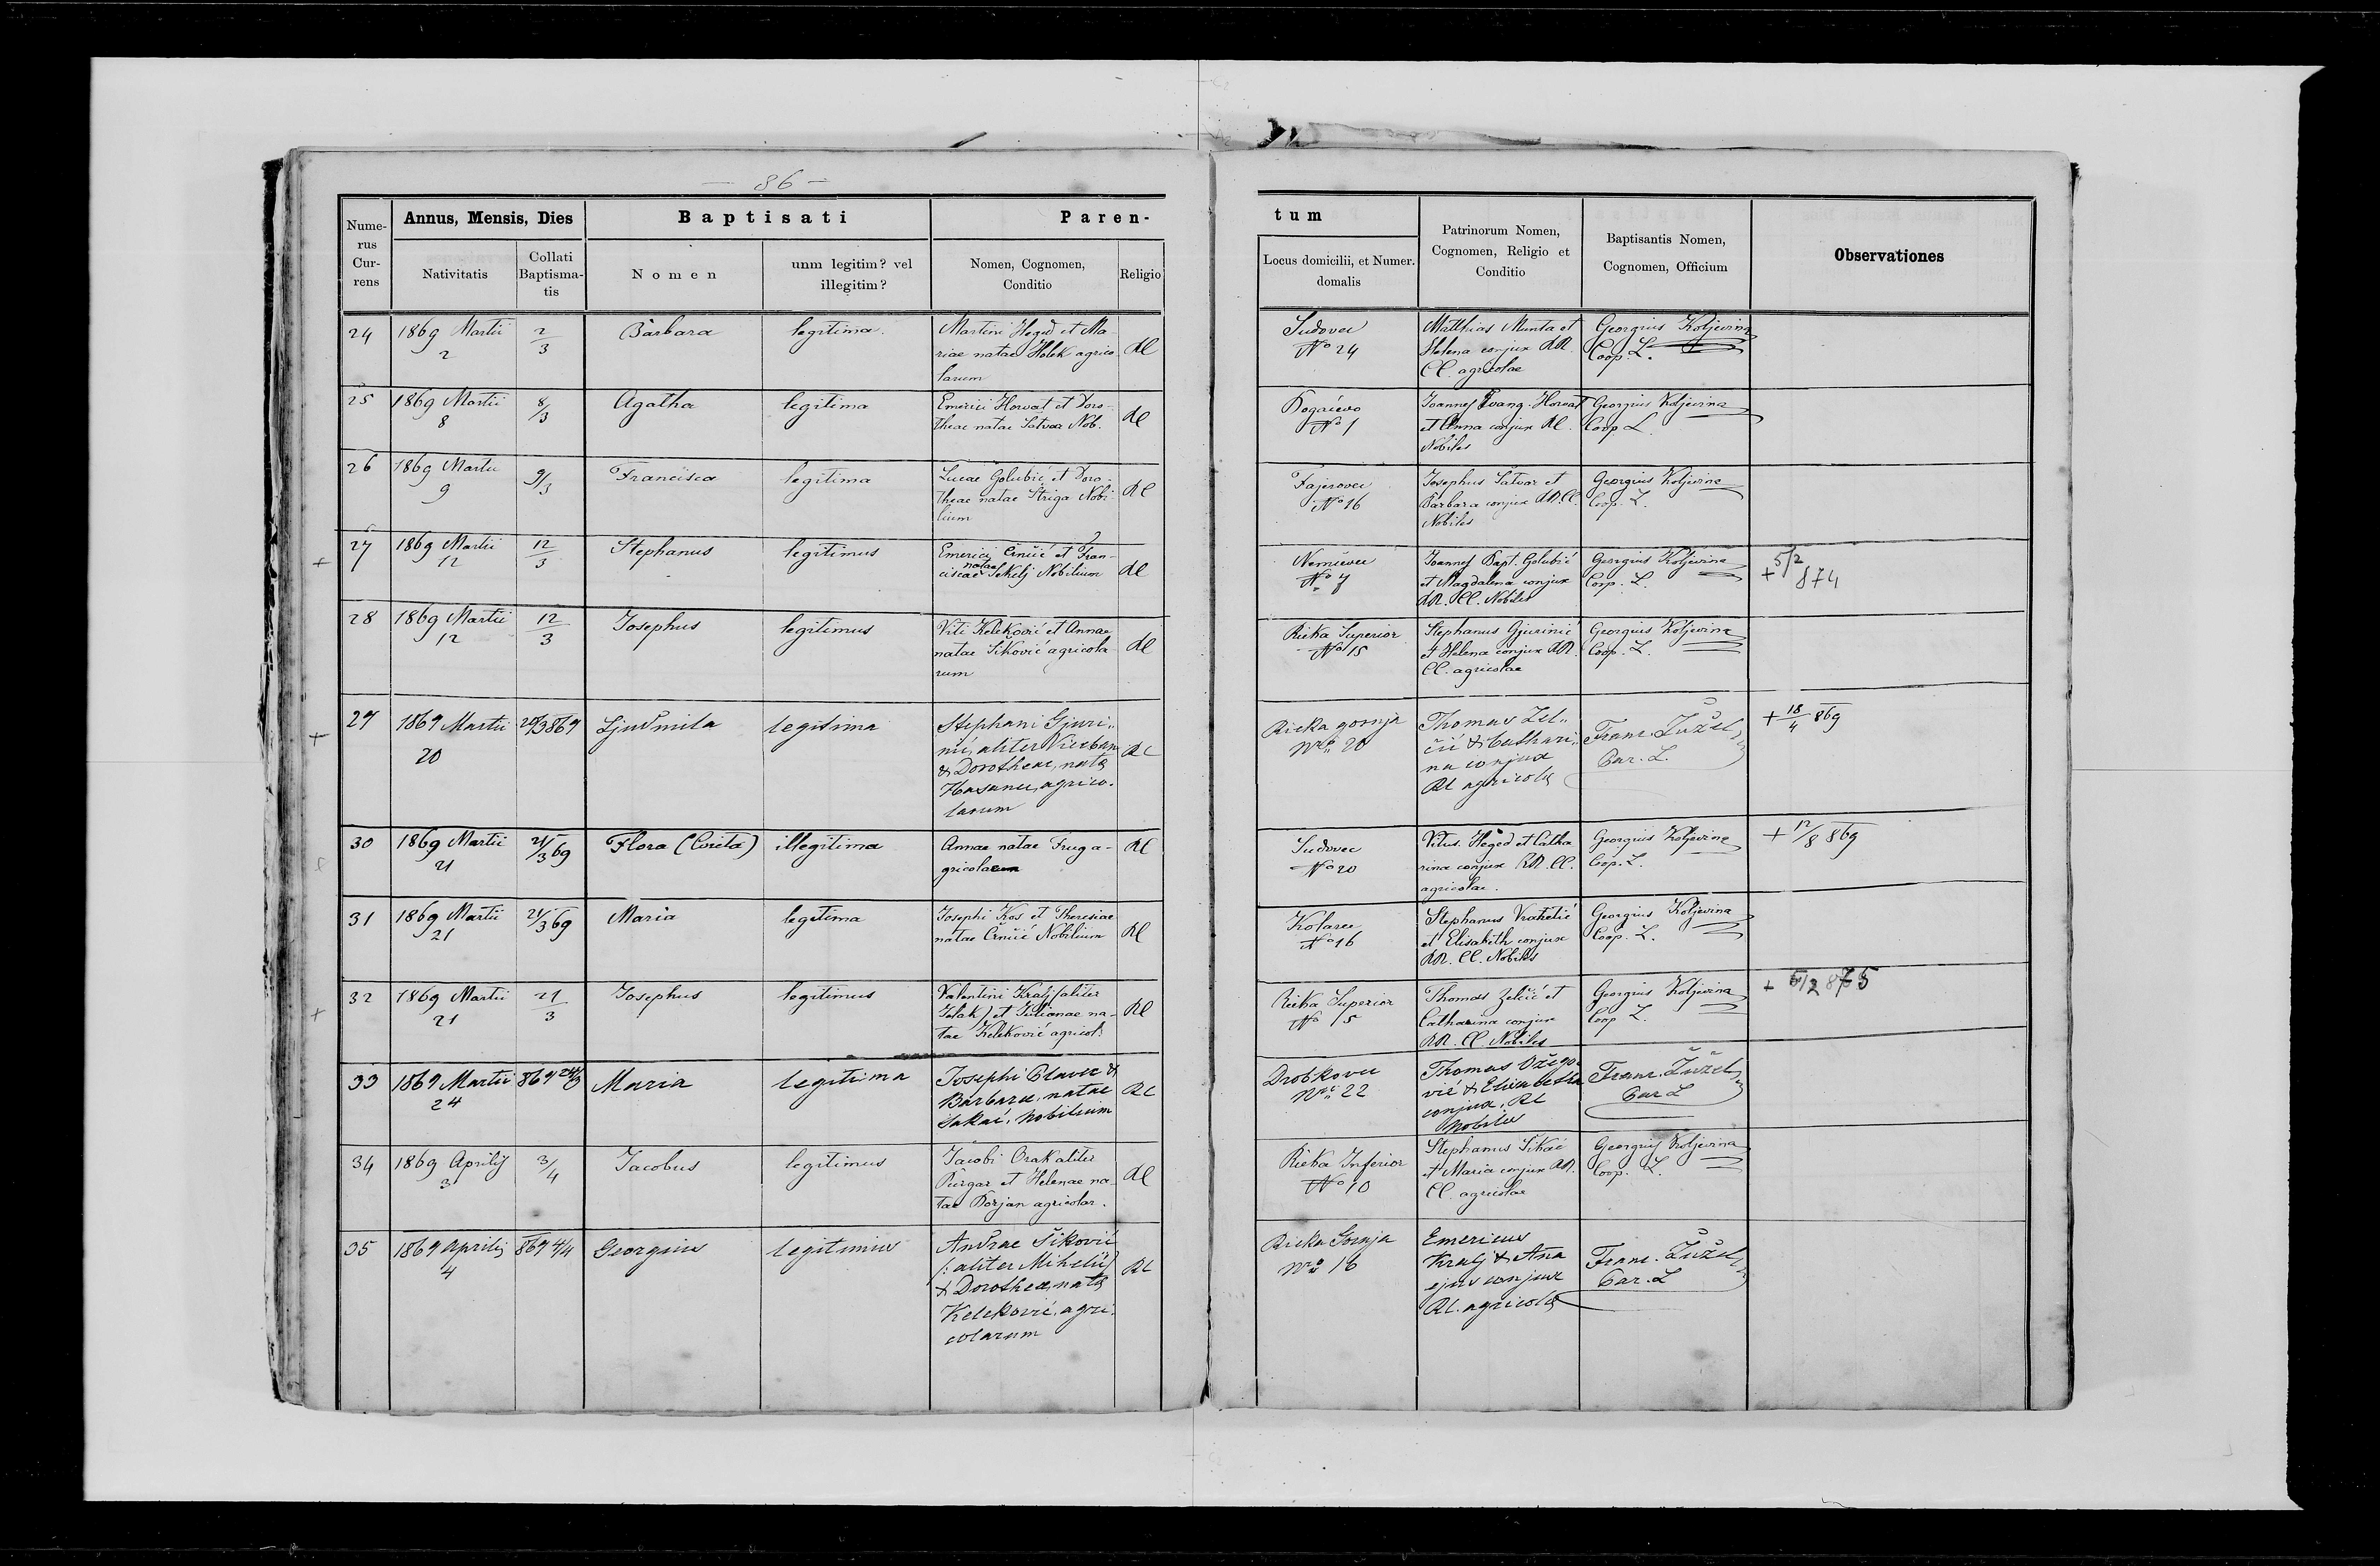 — 86 —
Nume-
rus
Cur-
rens
Annus, Mensis, Dies
Nativitatis
Collati
Baptisma-
tis
Baptisati
Nomen
unm legitim? vel
illegitim?
Paren-
Nomen, Cognomen,
Conditio
Religio
tum
Locus domicilii, et Numer.
domalis
Patrinorum Nomen,
Cognomen, Religio et
Conditio
Baptisantis Nomen,
Cognomen, Officium
Observationes
24
1869 Martii
2
2/3
Barbara
legitima.
Martini Heged et Ma-
riae natae Holek agrico-
larum
RC
Sudovec
No 24
Matthias Munta et
Helena conjux RR.
CC. agricolae
Georgius Koljevina
Coop. L.
25
1869 Martii
8
8/3
Agatha
legitima
Emerici Horvat et Doro-
theae natae Šatvar Nob.
RC
No 1
Joannes Evang. Horvat
et Anna conjux RC.
Nobiles
Georgius Koljevina
Coop L.
26
1869 Martii
9
9/3
Francisca
legitima
Lucae Golubić et Doro-
theae natae Striga Nobi-
lium
RC
Fajerovec
No 16
Josephus Šatvar et
Barbara conjux RR.CC.
Nobiles
Georgius Koljevina
Coop. L.
27
1869 Martii
12
12/3
Stephanus
legitimus
Emerici Črnčić et Fran-
ciscae natae Sekelj Nobilium
RC
Nemčevec
No 7
Joannes Bapt. Golubić
et Magdalena conjux
RR. CC. Nobiles
Georgius Koljevina
Coop. L.
+ 5/2
874
28
1869 Martii
12
12/3
Josephus
legitimus
Viti Keleković et Annae
natae Šiković agricola-
rum
RC
Rieka Superior
No 15
Stephanus Gjurinić
et Helena conjux RR.
CC. agricolae
Georgius Koljevina
Coop. L.
29
1869 Martii
20
20/3 869
Ljudmila
legitima
Stephani Gjuri„
nić, aliter
& Dorotheae, natę
agrico.
larum
RC
Rieka gornja
Nro 20
Thomas Zel„
čić & Cathari„
na conjux
RC agricolę
Franc. Žužel
Par. L.
+ 18/4 869
30
1869 Martii
21
21/3 69
Flora (Cvieta)
illegitima
Annae natae Frug a-
gricolae
RC
Sudovec
No 20
Vitus Heged et Catha
rina conjux RR. CC.
agricolae.
Georgius Koljevina
Coop. L.
+ 12/8 869
31
1869 Martii
21
21/3 69
Maria
legitima
Josephi Kos et Theresiae
natae Črnčić Nobilium
RC
Kolarec
No 16
Stephanus Vratetić
et Elisabeth conjux
RR. CC. Nobiles
Georgius Koljevina
Coop. L.
32
1869 Martii
21
21/3
Josephus
legitimus
Valentini Kralj (aliter
Jelak) et Julianae na-
tae Keleković agricol.
RC
Rieka Superior
No 15
Thomas Zelčić et
Catharina conjux
RR. CC. Nobiles
Georgius Koljevina
Coop L.
33
1869 Martii
24
869 24/3
Maria
legitima
Josephi Glavec &
Barbarae, natae
Sakač, nobilium
RC
Drobkovec
Nro 22
Thomas Ožego
vić & Elisabetha
conjux, RC
nobiles
Franc. Žužel
Par L
34
1869 Aprilij
3
3/4
Jacobus
legitimus
Jacobi Orak aliter
Purgar et Helenae na-
tae Borjan agricolar.
RC
Rieka Inferior
No 10
Stephanus Sikač
et Maria conjux RR.
CC. agricolae
Georgius Koljevina
Coop. L.
35
1869 Aprilij
4
869 4/4
Georgius
legitimus
Andrae Šiković
(: aliter Mihelič)
& Dorotheae, natę
Keleković, agri.
colarum
RC
Rieka Gornja
Nro 16
Emericus
Kralj & Ana
ejus conjux
RC. agricolę
Franc. Žužel
Par. L